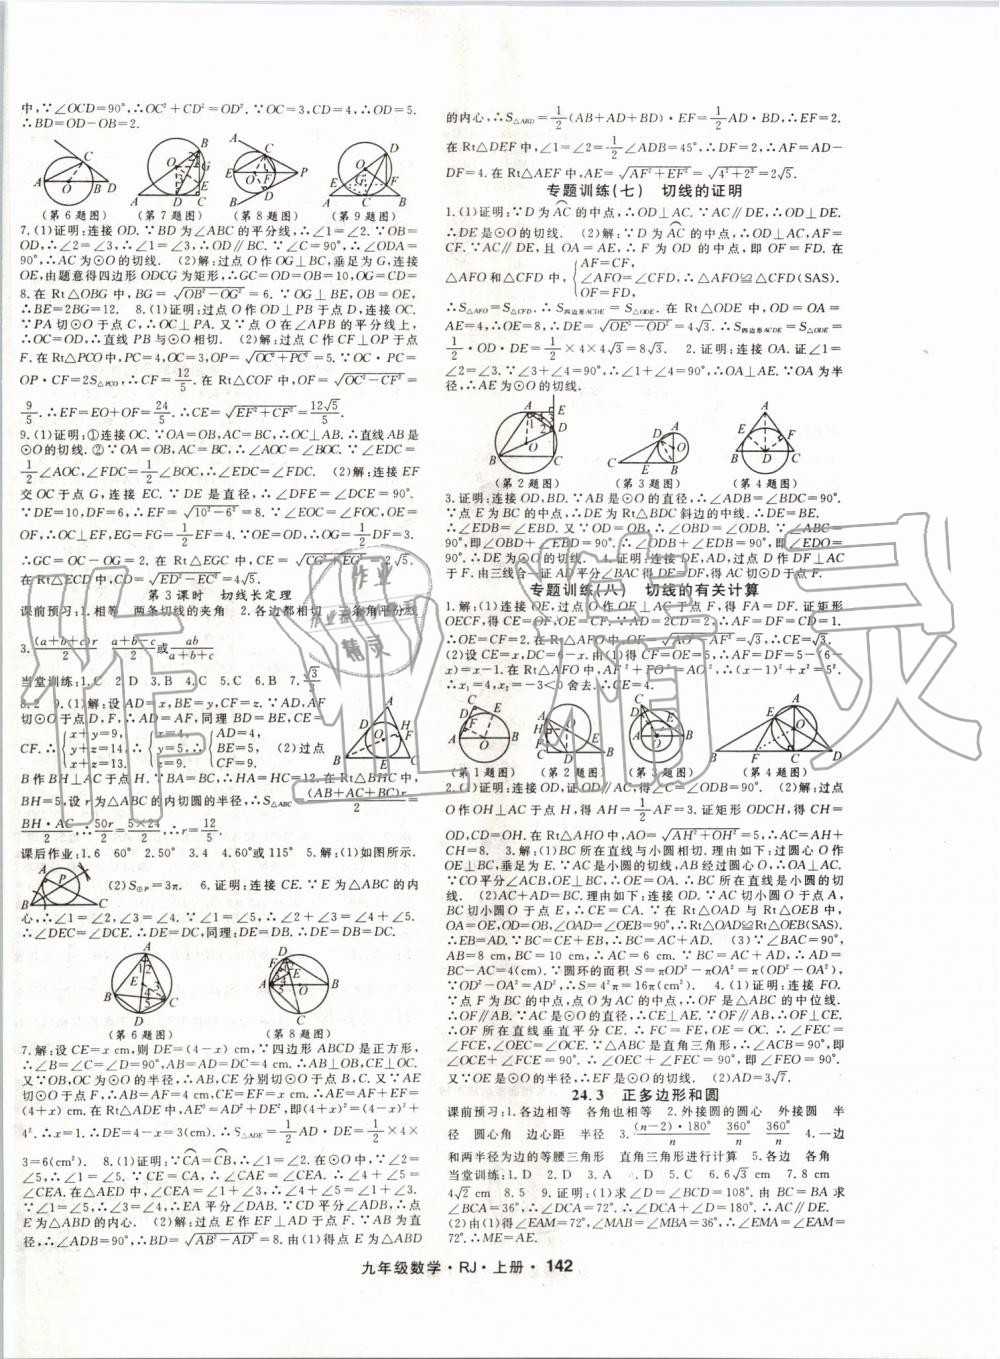 中,∵∠OCD=90°,∴OC²+CD²=OD².∵OC=3,CD=4,∴OD=5.
∴BD=OD-OB=2.
(第6题图) (第7题图) (第8题图) (第9题图)
7.(1)证明:连接OD.∵BD为∠ABC的平分线,∴∠1=∠2.∵OB=
OD,∴∠2=∠3,∴∠1=∠3,∴OD∥BC.∵∠C=90°,∴∠ODA=
90°,∴AC为⊙O的切线. (2)解:过点O作OG⊥BC,垂足为G,连接
OE,由题意得四边形ODCG为矩形,∴GC=OD=OB=10,OG=CD=
8.在Rt△OBG中,BG=√(OB²-OG²)=6.∵OG⊥BE,OB=OE,
∴BE=2BG=12. 8.(1)证明:过点O作OD⊥PB于点D,连接OC.
∵PA切⊙O于点C,∴OC⊥PA.又∵点O在∠APB的平分线上,
∴OC=OD,∴直线PB与⊙O相切. (2)解:过点C作CF⊥OP于点
F.在Rt△PCO中,PC=4,OC=3,OP=√(OC²+PC²)=5.∵OC·PC=
OP·CF=2S△PCO,∴CF=12/5.在Rt△COF中,OF=√(OC²-CF²)=
9/5.∴EF=EO+OF=24/5.∴CE=√(EF²+CF²)=12√5/5.
9.(1)证明:①连接OC.∵OA=OB,AC=BC,∴OC⊥AB.∴直线AB是
⊙O的切线.②∵OA=OB,AC=BC,∴∠AOC=∠BOC.∵∠EDC=
1/2∠AOC,∠FDC=1/2∠BOC,∴∠EDC=∠FDC. (2)解:连接EF
交OC于点G,连接EC.∵DE是直径,∴∠DFE=∠DCE=90°.
∵DE=10,DF=6,∴EF=√(10²-6²)=8.∵∠EOC=∠FOC,OE=
OF,∴OC⊥EF,EG=FG=1/2EF=4.∵OD=OE,∴OG=1/2DF=3.
∴GC=OC-OG=2.在Rt△EGC中,CE=√(CG²+EG²)=2√5.
在Rt△ECD中,CD=√(ED²-EC²)=4√5.
第3课时 切线长定理
课前预习:1.相等 两条切线的夹角 2.各边都相切 三条角平分线
3.(a+b+c)r/2 (a+b-c)/2或ab/(a+b+c)
当堂训练:1.C 2.D 3.B 4.C 5.C 6.B 7.√3/3
8.2 9.(1)解:设AD=x,BE=y,CF=z.∵AD,AF
切⊙O于点D,F,∴AD=AF,同理BD=BE,CE=
CF.∴{x+y=9,y+z=14,z+x=13.∴{x=4,y=5,z=9.∴{AD=4,BE=5,CF=9. (2)过点
B作BH⊥AC于点H.∵BA=BC,∴HA=HC=12.在Rt△ABH中,
BH=5,设r为△ABC的内切圆的半径,∴S△ABC=(AB+AC+BC)r/2=
BH·AC/2,∴50r/2=5×24/2,∴r=12/5.
课后作业:1.6 60° 2.50° 3.4 4.60°或115° 5.解:(1)如图所示.
(2)S⊙P=3π. 6.证明:连接CE.∵E为△ABC的内
心,∴∠1=∠2,∠3=∠4.∵∠1=∠5,∴∠2+∠3=∠4+∠5.
∴∠DEC=∠DCE.∴DE=DC,同理:DE=DB.∴DE=DB=DC.
(第6题图) (第8题图)
7.解:设CE=x cm,则DE=(4-x)cm,∵四边形ABCD是正方形,
∴∠B=∠C=∠D=90°,AB=AD=DC=4 cm.∴AB⊥OB,CE⊥OC.
又∵OB,OC为⊙O的半径,∴AB,CE分别切⊙O于点B,C.又∵AE
切⊙O于点F,∴AF=AB=4 cm,EF=CE=x cm.∴AE=AF+EF=
(4+x)cm.在Rt△ADE中,AE²=AD²+DE²,即(4+x)²=(4-x)²+
4².∴x=1.∴DE=4-x=3(cm).∴S△ADE=1/2AD·DE=1/2×4×
3=6(cm²). 8.(1)证明:∵CD=CB,∴∠1=∠2.∵∠2=
∠5,∴∠1=∠5.∵CE=CA,∴∠CAE=∠CEA.∴∠3+∠5=
∠CEA.在△AED中,∠CEA=∠1+∠4,∴∠3+∠5=∠1+∠4.
∵∠1=∠5,∴∠3=∠4,∴EA平分∠DAB.∵CD平分∠ADB,∴点
E为△ABD的内心. (2)解:过点E作EF⊥AD于点F.∵AB为直
径,∴∠ADB=90°,∴BD=√(AB²-AD²)=8.由(1)得点E为△ABD
的内心,∴S△ABD=1/2(AB+AD+BD)·EF=1/2AD·BD,∴EF=2.
在Rt△DEF中,∠1=∠2=1/2∠ADB=45°,∴DF=2,∴AF=AD-
DF=4.在Rt△AEF中,AE=√(AF²+EF²)=√(4²+2²)=2√5.
专题训练(七) 切线的证明
1.(1)证明:∵D为AC的中点,∴OD⊥AC.∵AC∥DE,∴OD⊥DE.
∴DE是⊙O的切线. (2)解:∵D为AC的中点,∴OD⊥AC,AF=
CF.∵AC∥DE,且OA=AE,∴F为OD的中点,即OF=FD.在
△AFO和△CFD中,{AF=CF,∠AFO=∠CFD,OF=FD,∴△AFO≌△CFD(SAS).
∴S△AFO=S△CFD.∴S四边形ACDE=S△ODE.在Rt△ODE中,OD=OA=
AE=4,∴OE=8,∴DE=√(OE²-OD²)=4√3.∴S四边形ACDE=S△ODE=
1/2·OD·DE=1/2×4×4√3=8√3. 2.证明:连接OA.证∠1=
∠2=∠3=∠4,∴∠1+∠OAB=∠4+∠OAB=90°,∴OA⊥AE.∵OA为半
径,∴AE为⊙O的切线.
(第2题图) (第3题图) (第4题图)
3.证明:连接OD,BD.∵AB是⊙O的直径,∴∠ADB=∠BDC=90°.
∵点E为BC的中点,∴DE为Rt△BDC斜边的中线.∴DE=BE.
∴∠EDB=∠EBD.又∵OD=OB,∴∠OBD=∠ODB.∵∠ABC=
90°,即∠OBD+∠EBD=90°,∴∠ODB+∠EDB=90°,即∠EDO=
90°,∴DE为⊙O的切线. 4.证明:连接DE,AD,过点D作DF⊥AC
于点F.由三线合一证AD平分∠BAC,DE=DF,∴AC与⊙D相切.
专题训练(八) 切线的有关计算
1.解:(1)连接OE,过点O作OF⊥AC于点F,得FA=FD.证矩形
OECF,得OF=CE,OE=CF.∵AD=2CD=2,∴AF=DF=1,
∴AO=OE=CF=2,∴CE=OF=√(AO²-AF²)=√3.
(2)设CE=x,∴OF=CE=x.由(1)得CF=OE=5,∴DF=5-(6-
x)=x-1.在Rt△AFO中,AF²+FO²=AO²,∴(x-1)²+x²=5²,
∴x₁=4,x₂=-3<0舍去,∴CE=4.
(第1题图) (第2题图) (第3题图) (第4题图)
2.(1)证明:连接OD,证∠ODC=90°,∴CD是⊙O的切线. (2)解:过点
O作OH⊥AC于点H,得AH=1/2AF=3.证矩形ODCH,得CH=
OD,CD=OH.在Rt△AHO中,AO=√(AH²+OH²)=5,∴AC=AH+
CH=8. 3.解:(1)BC所在直线与小圆相切.理由如下:过圆心O作
OE⊥BC,垂足为E.∵AC是小圆的切线,AB经过圆心O,∴OA⊥AC.
∵CO平分∠ACB,OE⊥BC,∴OE=OA.∴BC所在直线是小圆的切
线. (2)AC+AD=BC.理由如下:连接OD.∵AC切小圆O于点A,
BC切小圆O于点E,∴CE=CA.∵在Rt△OAD与Rt△OEB中,
OA=OE,OD=OB,∠OAD=∠OEB=90°,∴Rt△OAD≌Rt△OEB(SAS).
∴EB=AD.∵BC=CE+EB,∴BC=AC+AD. (3)∵∠BAC=90°,
AB=8 cm,BC=10 cm,∴AC=6 cm.∵BC=AC+AD,∴AD=
BC-AC=4(cm).∵圆环的面积S=πOD²-πOA²=π(OD²-OA²),
∵OD²-OA²=AD²,∴S=4²π=16π(cm²). 4.(1)证明:连接FO.
∵点F为BC的中点,点O为AC的中点,∴OF是△ABC的中位线.
∴OF∥AB.∵AC是⊙O的直径,∴CE⊥AE.∵OF∥AB,∴OF⊥CE.
∴OF所在直线垂直平分CE.∴FC=FE,OE=OC.∴∠FEC=
∠FCE,∠OEC=∠OCE.∵△ABC是直角三角形,∴∠ACB=90°,即
∠OCE+∠FCE=90°.∴∠OEC+∠FEC=90°,即∠FEO=90°.
又∵OE为⊙O的半径,∴EF是⊙O的切线. (2)AD=3√7.
24.3 正多边形和圆
课前预习:1.各边相等 各角也相等 2.外接圆的圆心 外接圆 半
径 圆心角 边心距 半径 3.(n-2)·180°/n 360°/n 360°/n 4.一边
和两半径为边的等腰三角形 直角三角形进行计算 5.各边 各角
当堂训练:1.D 2.D 3.B 4.B 5.C 6.6√3 cm 7.8 cm
4√2 cm 8.5 9.证明:(1)求∠D=∠BCD=108°.由BC=BA求
∠BCA=36°,∴∠ACD=72°,∴∠ACD+∠D=180°,∴AC∥DE.
(2)由(1)得∠EAM=72°,∠MAB=∠MBA=36°,∴∠AME=72°=
∠EAM.∴ME=AE.
九年级数学·RJ·上册·142
作业精灵